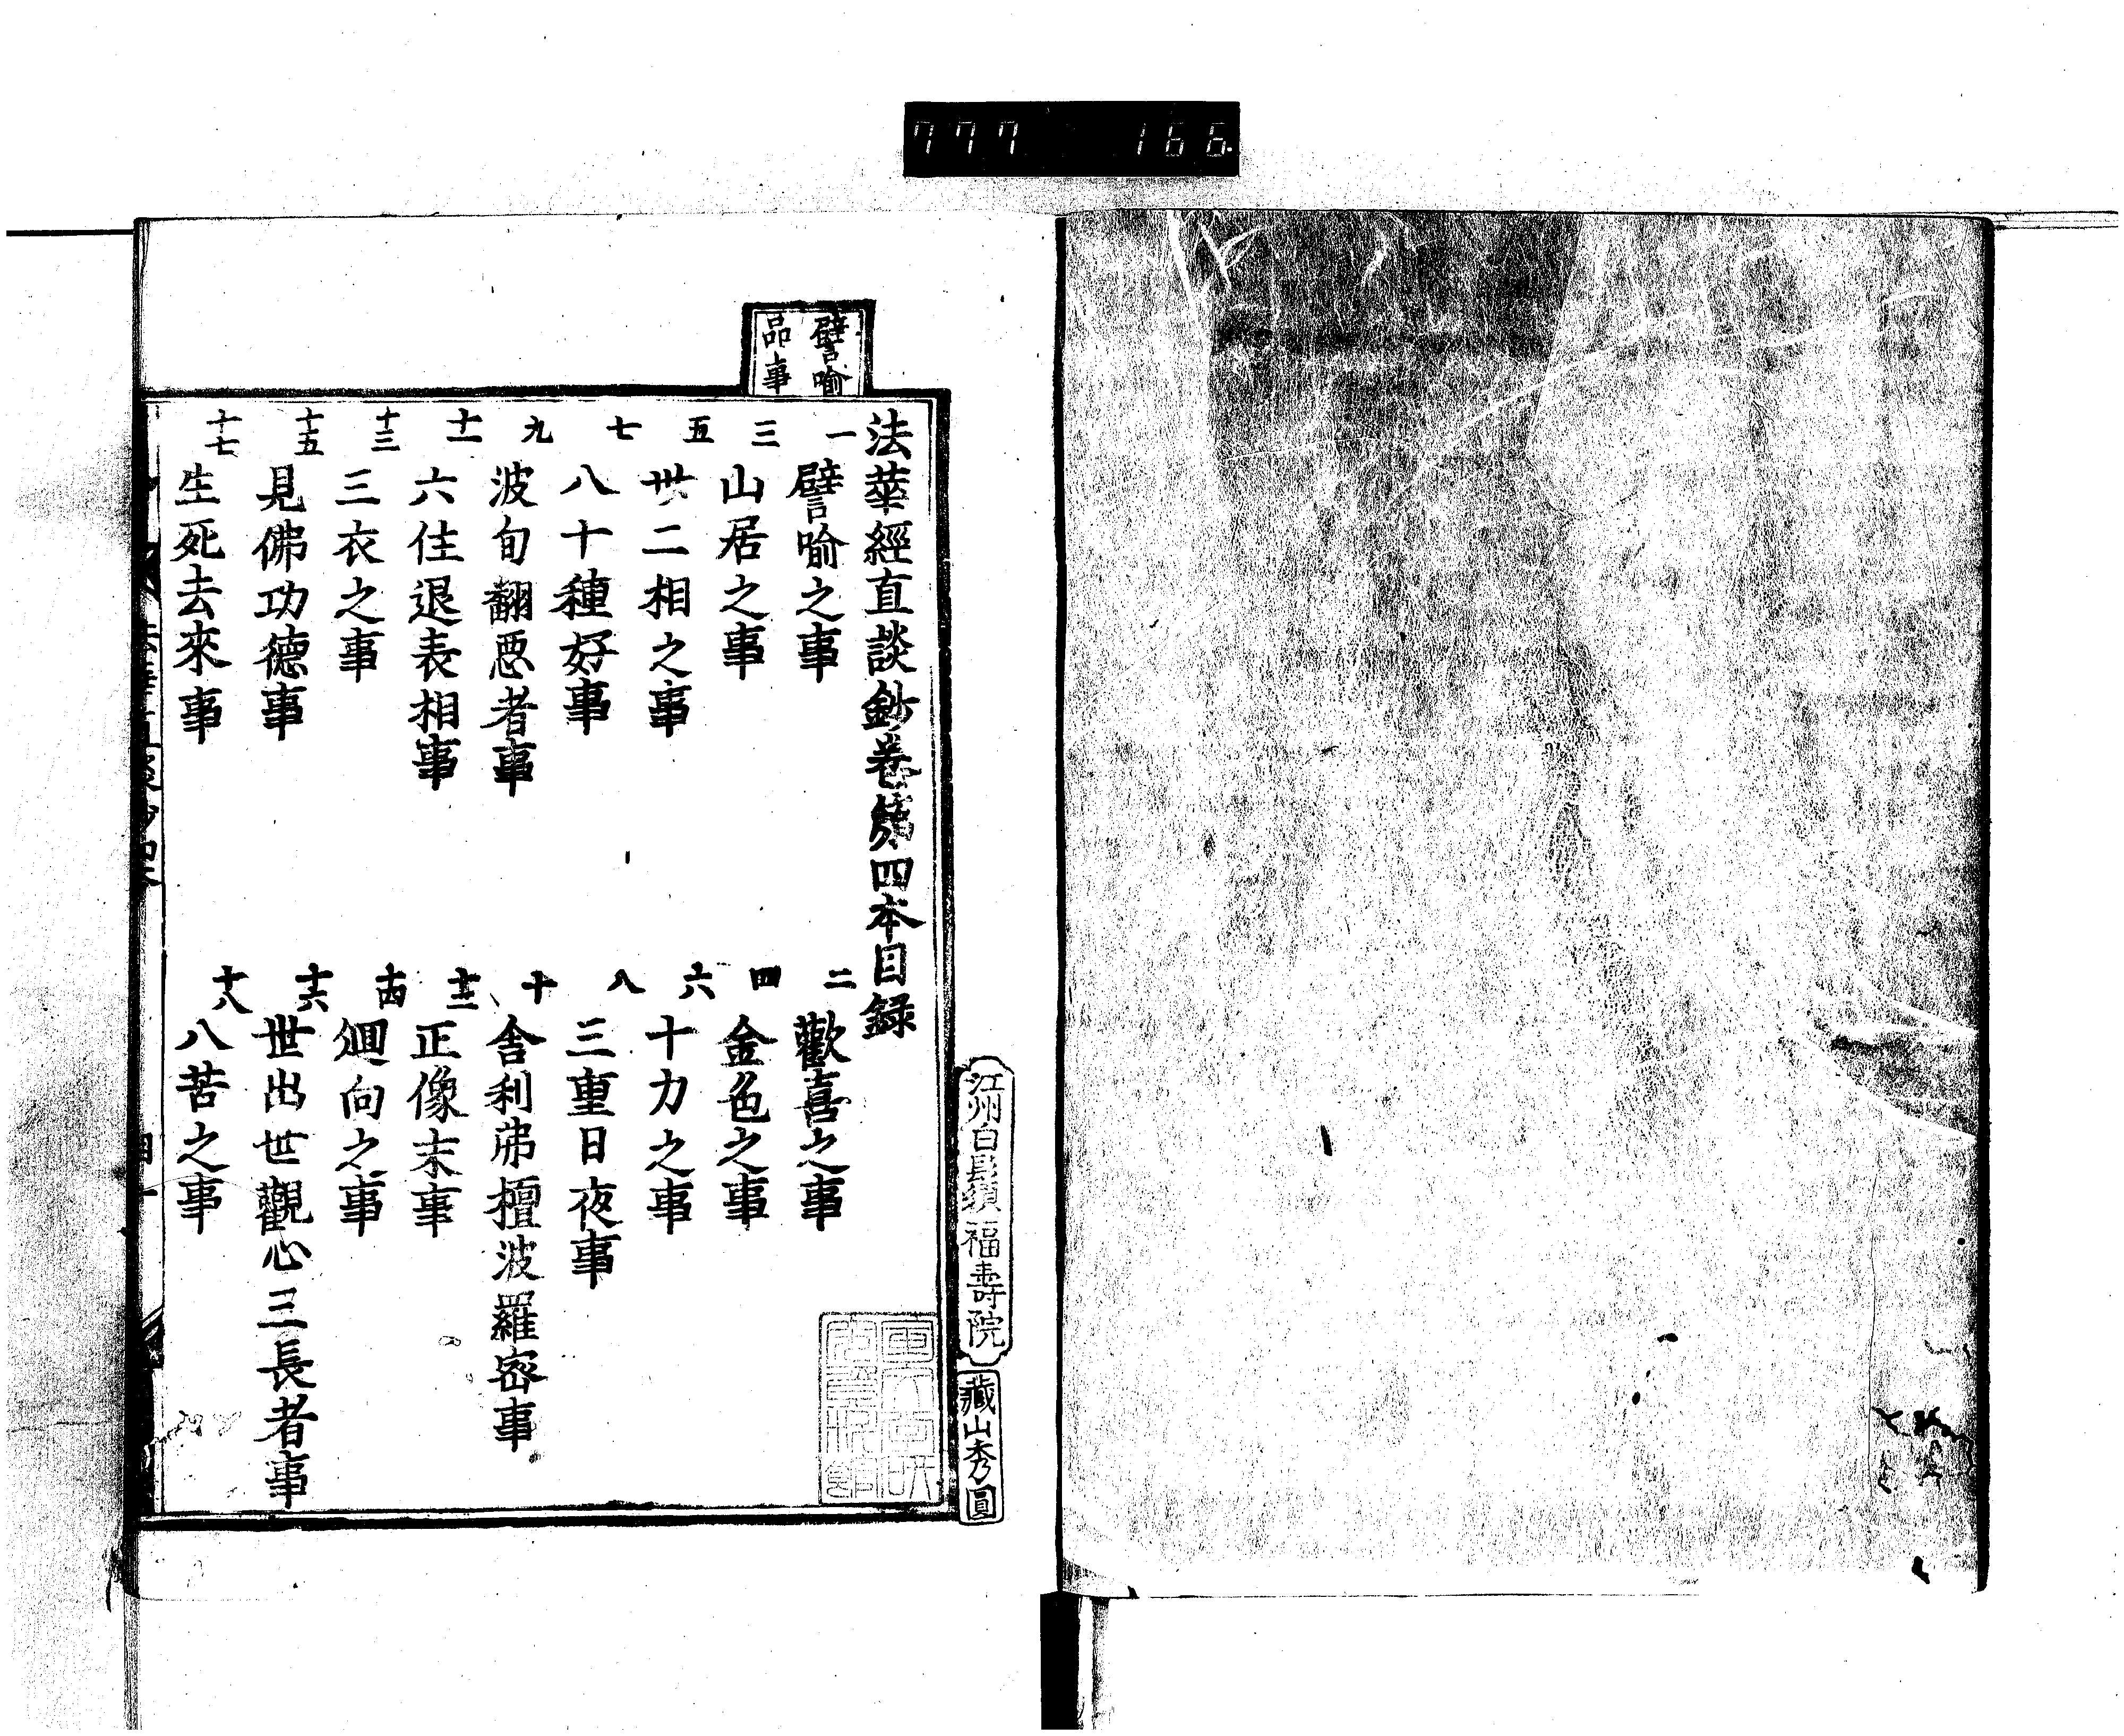 777 166
譬喻
品事
法華經直談鈔卷第四本目録
一 譬喻之事 二 歡喜之事
三 山居之事 四 金色之事
五 丗二相之事 六 十力之事
七 八十種好事 八 三重日夜事
九 波旬翻惡者事 十 舎利弗檀波羅密事
十一 六住退表相事 十二 正像末事
十三 三衣之事 十四 廻向之事
十五 見佛功德事 十六 世出世觀心三長者事
十七 生死去來事 十八 八苦之事
江州白髭嶺福壽院
藏山秀圓